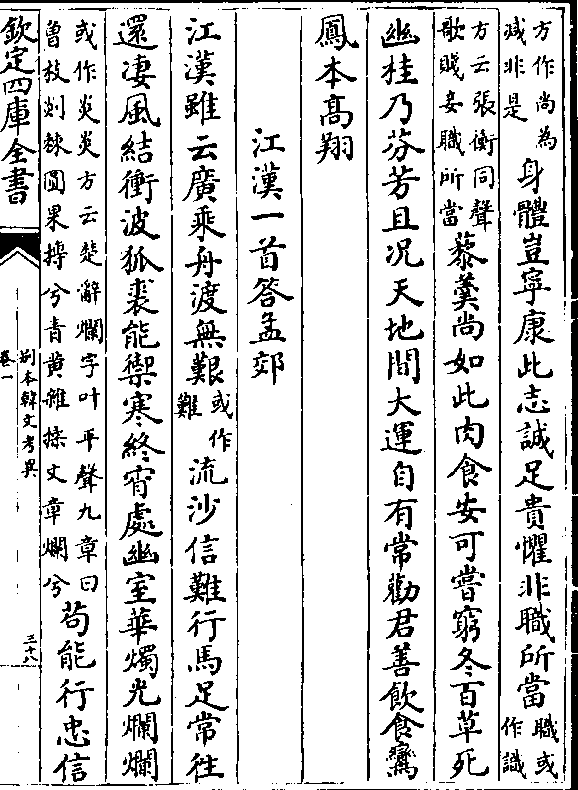 方作尚為
減非是
身體豈寧康此志誠足貴懼非職所當
職或
作識
方云張衡同聲
歌賤妾職所當
藜羹尚如此肉食安可嘗窮冬百草死
幽桂乃芬芳且况天地間大運自有常勸君善飲食鸞
鳳本髙翔
江漢一首答孟郊
江漢雖云廣乘舟渡無艱
或作
難
流沙信難行馬足常往
還凄風結衝波狐裘能禦寒終宵處幽室華燭光爛爛
或作炎炎方云楚辭爛字叶平聲九章曰
曾枝剡棘圓果摶兮青黄雜揉文章爛兮
苟能行忠信
欽定四庫全書
别本韓文考異
卷一
三十八